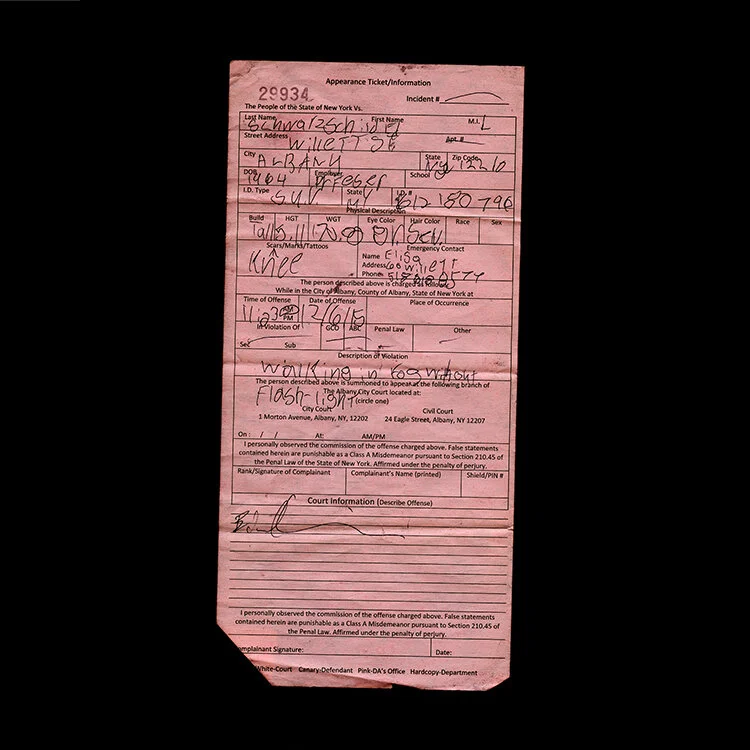 Appearance Ticket/Information
29934
Incident #
The People of the State of New York Vs.
Last Name First Name M.I.
L
Street Address Apt.#
WILLETT St
City State Zip Code
ALBANY NY 12210
DOB Employer School
1964
I.D. Type State I.D. #
Physical Description
Build HGT WGT Eye Color Hair Color Race Sex
Tall
Scars/Marks/Tattoos Emergency Contact
Knee
Name Elisa
Address 60 Willett
Phone
The person described above is charged as follows
While in the City of Albany, County of Albany, State of New York at
Time of Offense Date of Offense Place of Occurrence
AM
PM
12/6/15
In Violation Of GCO ABC Penal Law Other
Sec Sub
Description of Violation
Walking in Fog without
The person described above is summoned to appear at the following branch of
The Albany City Court located at:
Flash-light (circle one)
City Court Civil Court
1 Morton Avenue, Albany, NY, 12202 24 Eagle Street, Albany, NY 12207
On: / / At: AM/PM
I personally observed the commission of the offense charged above. False statements
contained herein are punishable as a Class A Misdemeanor pursuant to Section 210.45 of
the Penal Law of the State of New York. Affirmed under the penalty of perjury.
Rank/Signature of Complainant Complainant's Name (printed) Shield/PIN #
Court Information (Describe Offense)
I personally observed the commission of the offense charged above. False statements
contained herein are punishable as a Class A Misdemeanor pursuant to Section 210.45 of
the Penal Law. Affirmed under the penalty of perjury.
omplainant Signature: Date:
White-Court Canary-Defendant Pink-DA's Office Hardcopy-Department